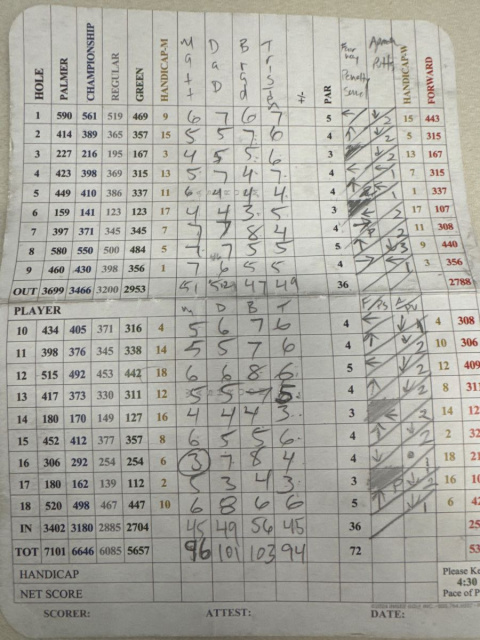 HOLE PALMER CHAMPIONSHIP REGULAR GREEN HANDICAP-M Matt DaD Brad +/- PAR HANDICAP-W FORWARD
1 590 561 519 469 9 6 7 6 7 5 15 443
2 414 389 365 357 15 5 5 7 6 4 5 315
3 227 216 195 167 3 4 5 5 6 3 13 167
4 423 398 369 315 13 5 7 4 7 4 7 315
5 449 410 386 337 11 6 4 4 4 4 1 337
6 159 141 123 123 17 4 4 3 5 3 17 107
7 397 371 345 345 7 7 7 8 4 4 11 308
8 580 550 500 484 5 7 7 5 5 5 9 440
9 460 430 398 356 1 7 6 5 5 4 3 356
OUT 3699 3466 3200 2953 51 52 47 49 36 2788
PLAYER M D B T
10 434 405 371 316 4 5 6 7 6 4 4 308
11 398 376 345 338 14 5 5 7 6 4 10 306
12 515 492 453 442 18 6 6 8 6 5 12 409
13 417 373 330 311 12 5 5 7 5 4 8 311
14 180 170 149 127 16 4 4 4 3 3 14 12
15 452 412 377 357 8 6 5 5 6 4 2 32
16 306 292 254 254 6 3 7 8 4 4 18 21
17 180 162 139 112 2 5 3 4 3 3 16 10
18 520 498 467 447 10 6 8 6 6 5 6 42
IN 3402 3180 2885 2704 45 49 56 45 36 25
TOT 7101 6646 6085 5657 96 101 103 94 72 53
HANDICAP Please Ke
NET SCORE 4:30
Pace of P
SCORER: ATTEST: DATE: